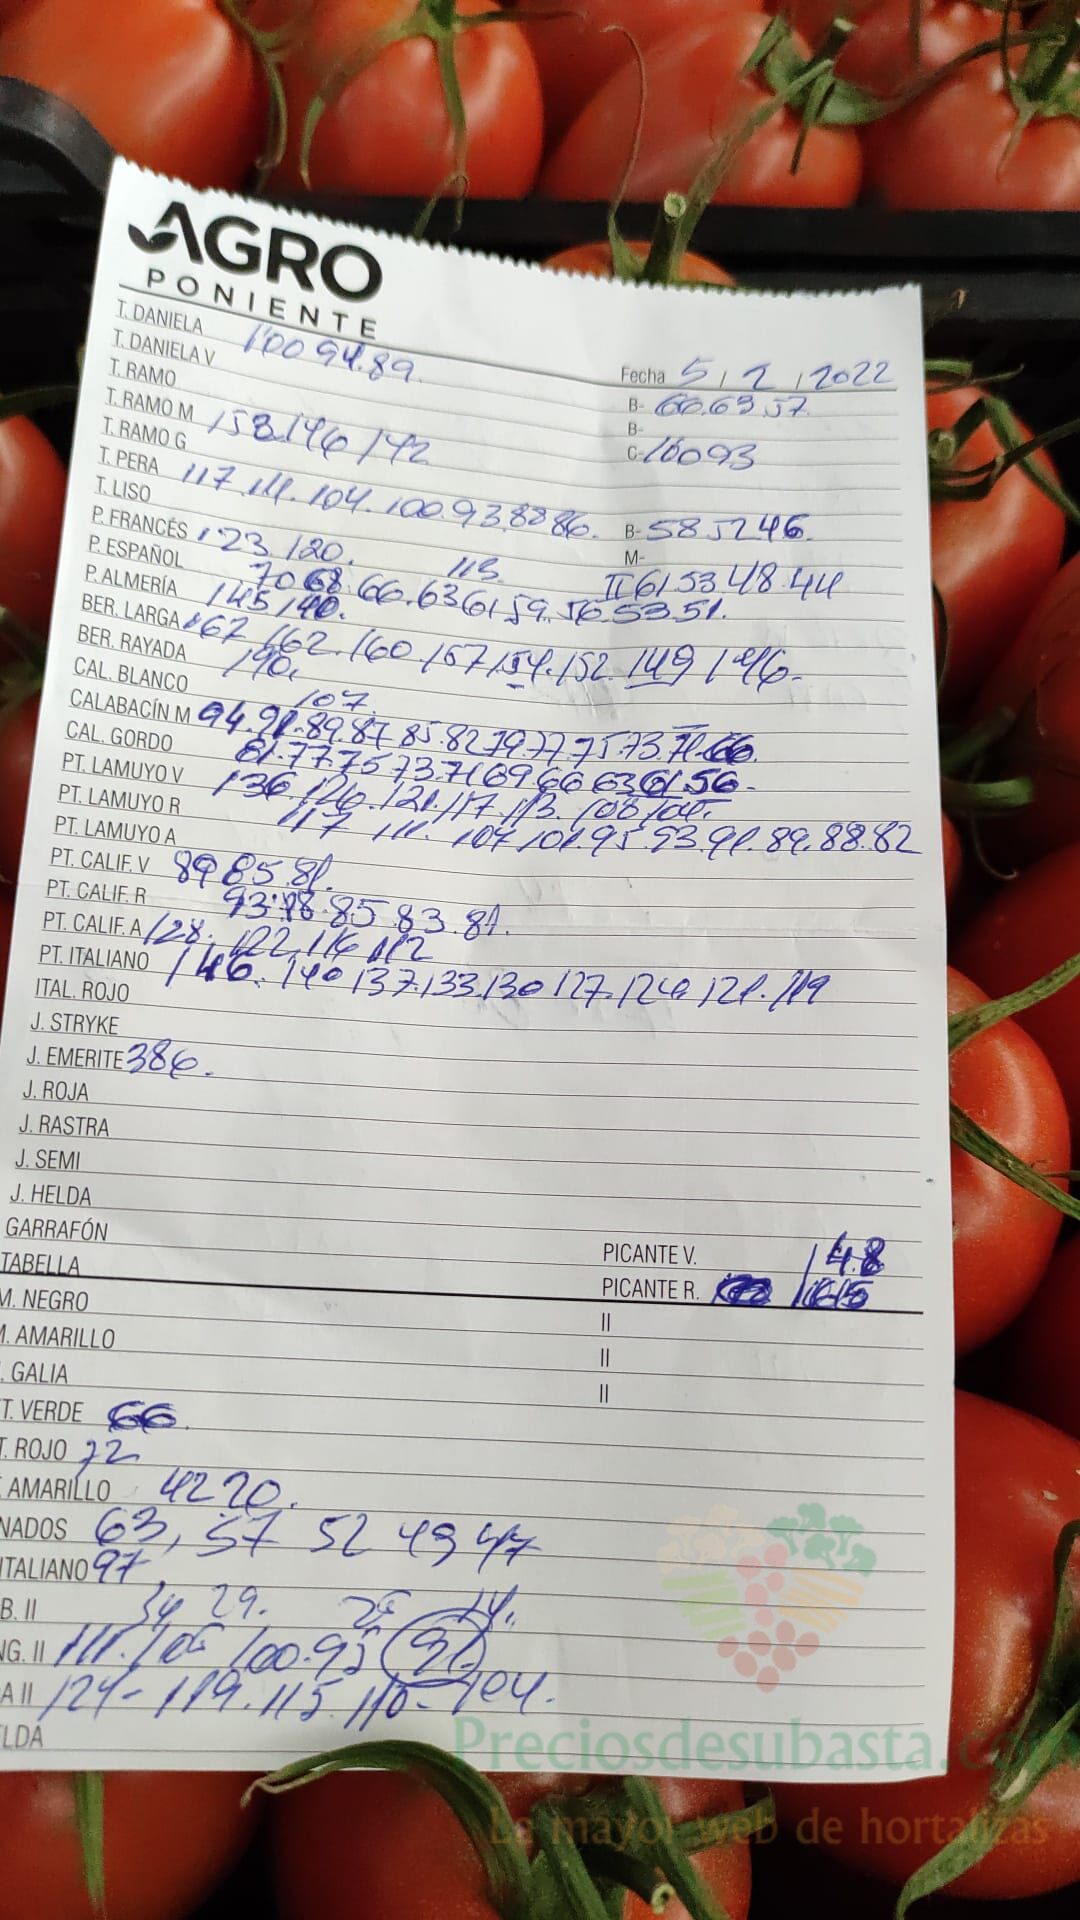 AGRO
PONIENTE
Fecha 5 / 2 / 2022
T. DANIELA 100 94.89. B- 66.63 57.
T. DANIELA V B-
T. RAMO C- 100 93
T. RAMO M 158.146 142
T. RAMO G
T. PERA 117.111.104.100.93.88 86. B- 58 52 46.
T. LISO M-
P. FRANCÉS 123.120. 113 II 61 53.48.44
P. ESPAÑOL 70 68.66.63 61 59.56.53.51.
P. ALMERÍA 145 140.
BER. LARGA 167 162.160 157 154.152.149 146-
BER. RAYADA 190.
CAL. BLANCO 107.
CALABACÍN M 94.91.89.87 85.82 79.77.75.73.71.66.
CAL. GORDO 81.77.75 73.71 69 66 63 61.56-
PT. LAMUYO V 136.126.121.117.113.108 105.
PT. LAMUYO R 117 111. 107 101.95.93.91.89.88.82
PT. LAMUYO A
PT. CALIF. V 89 85.81.
PT. CALIF. R 93.88.85 83.81.
PT. CALIF. A 128.122.116 112
PT. ITALIANO 146.140 137.133.130 127.124 121.119
ITAL. ROJO
J. STRYKE
J. EMERITE 386.
J. ROJA
J. RASTRA
J. SEMI
J. HELDA
GARRAFÓN PICANTE V. 148
TABELLA PICANTE R.
M. NEGRO II
M. AMARILLO II
. GALIA II
T. VERDE 66.
T. ROJO 72
. AMARILLO 42 20.
NADOS 63, 57 52 49 47
ITALIANO 97
B. II 34 29. 14.
NG. II 111.106 100.95 91
A II 124- 119.115.110-104.
LDA
Preciosdesubasta.co
La mayor web de hortalizas